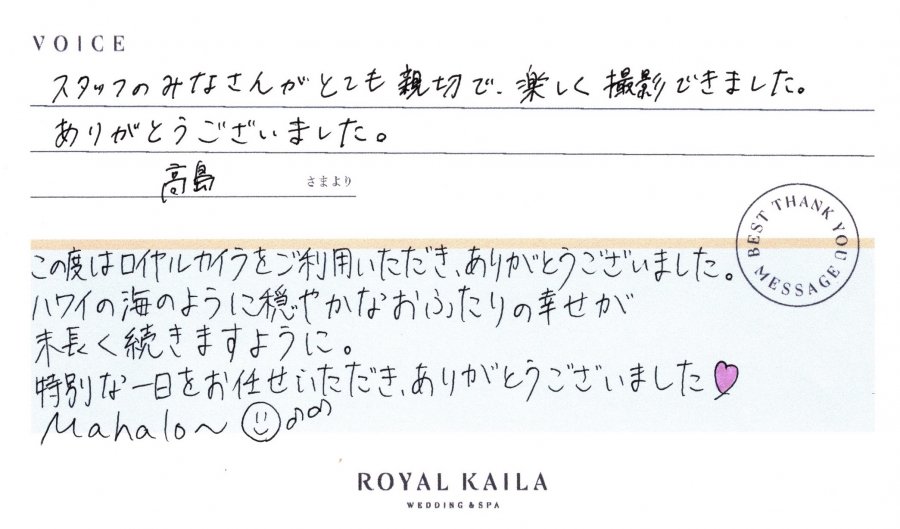 VOICE
スタッフのみなさんがとても親切で、楽しく撮影できました。
ありがとうございました。
高島 さまより
BEST THANK YOU MESSAGE
この度はロイヤルカイラをご利用いただき、ありがとうございました。
ハワイの海のように穏やかなおふたりの幸せが
末長く続きますように。
特別な一日をお任せいただき、ありがとうございました
Mahalo〜
ROYAL KAILA
WEDDING & SPA